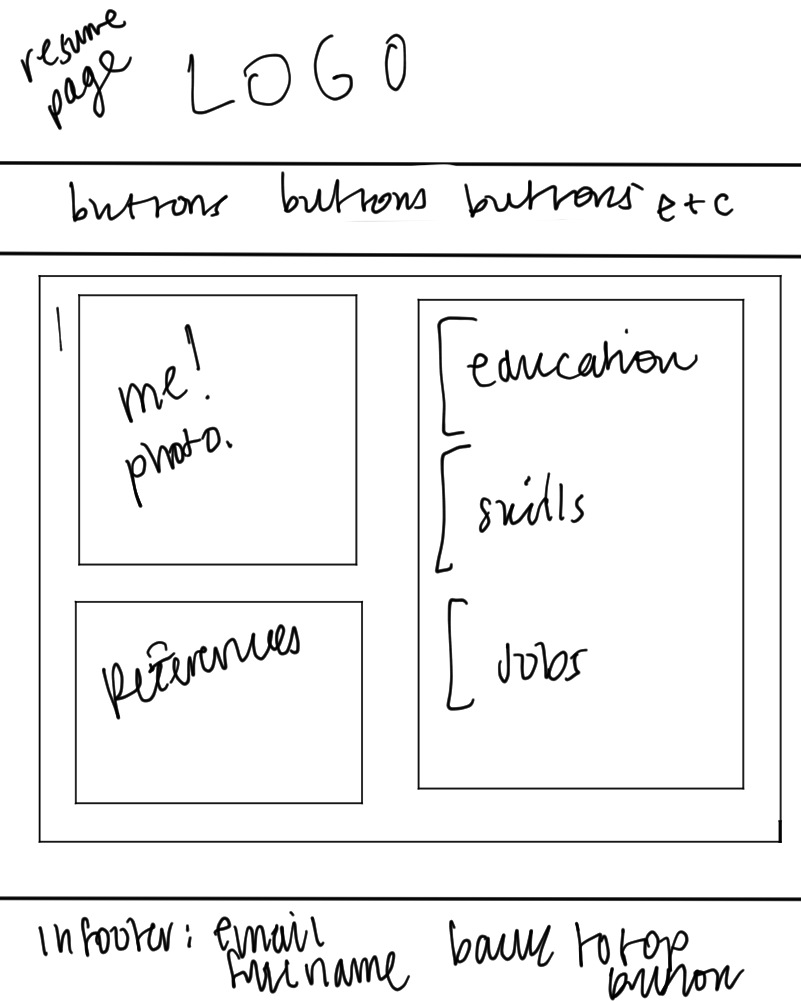 resume
page
LOGO
buttons buttons buttons etc
me!
photo.
References
education
skills
Jobs
in footer: email
full name
back to top
button